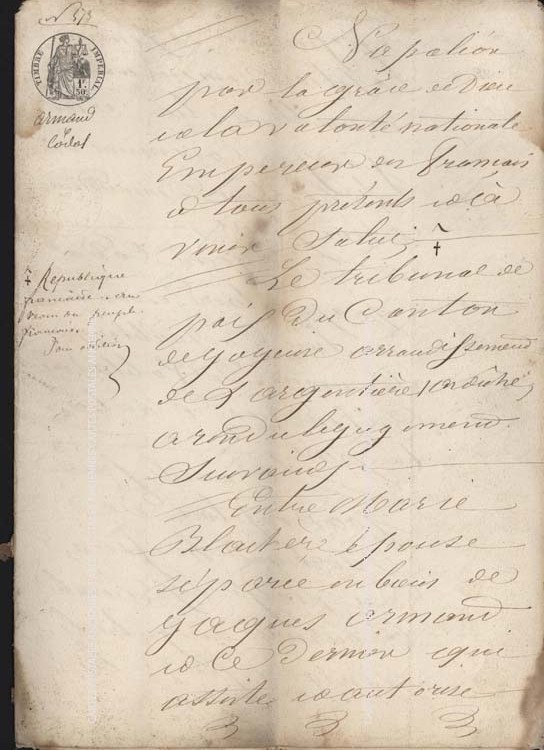 N° 573
TIMBRE IMPERIAL
1F. 50C.
armand
Napoléon
par la grâce de Dieu
et la volonté nationale
Empereur des français
a tous présents et à
venir Salut †
† République
française au
nom du peuple
français
Pour addition
Le tribunal de
paix Du Canton
de Joyeuse arrondissement
de Largentière (ardèche)
a rendu le jugement
Suivant
Entre Marie
Blachère épouse
séparée en biens de
Jaques armand
et ce Dernier qui
assiste et autorise